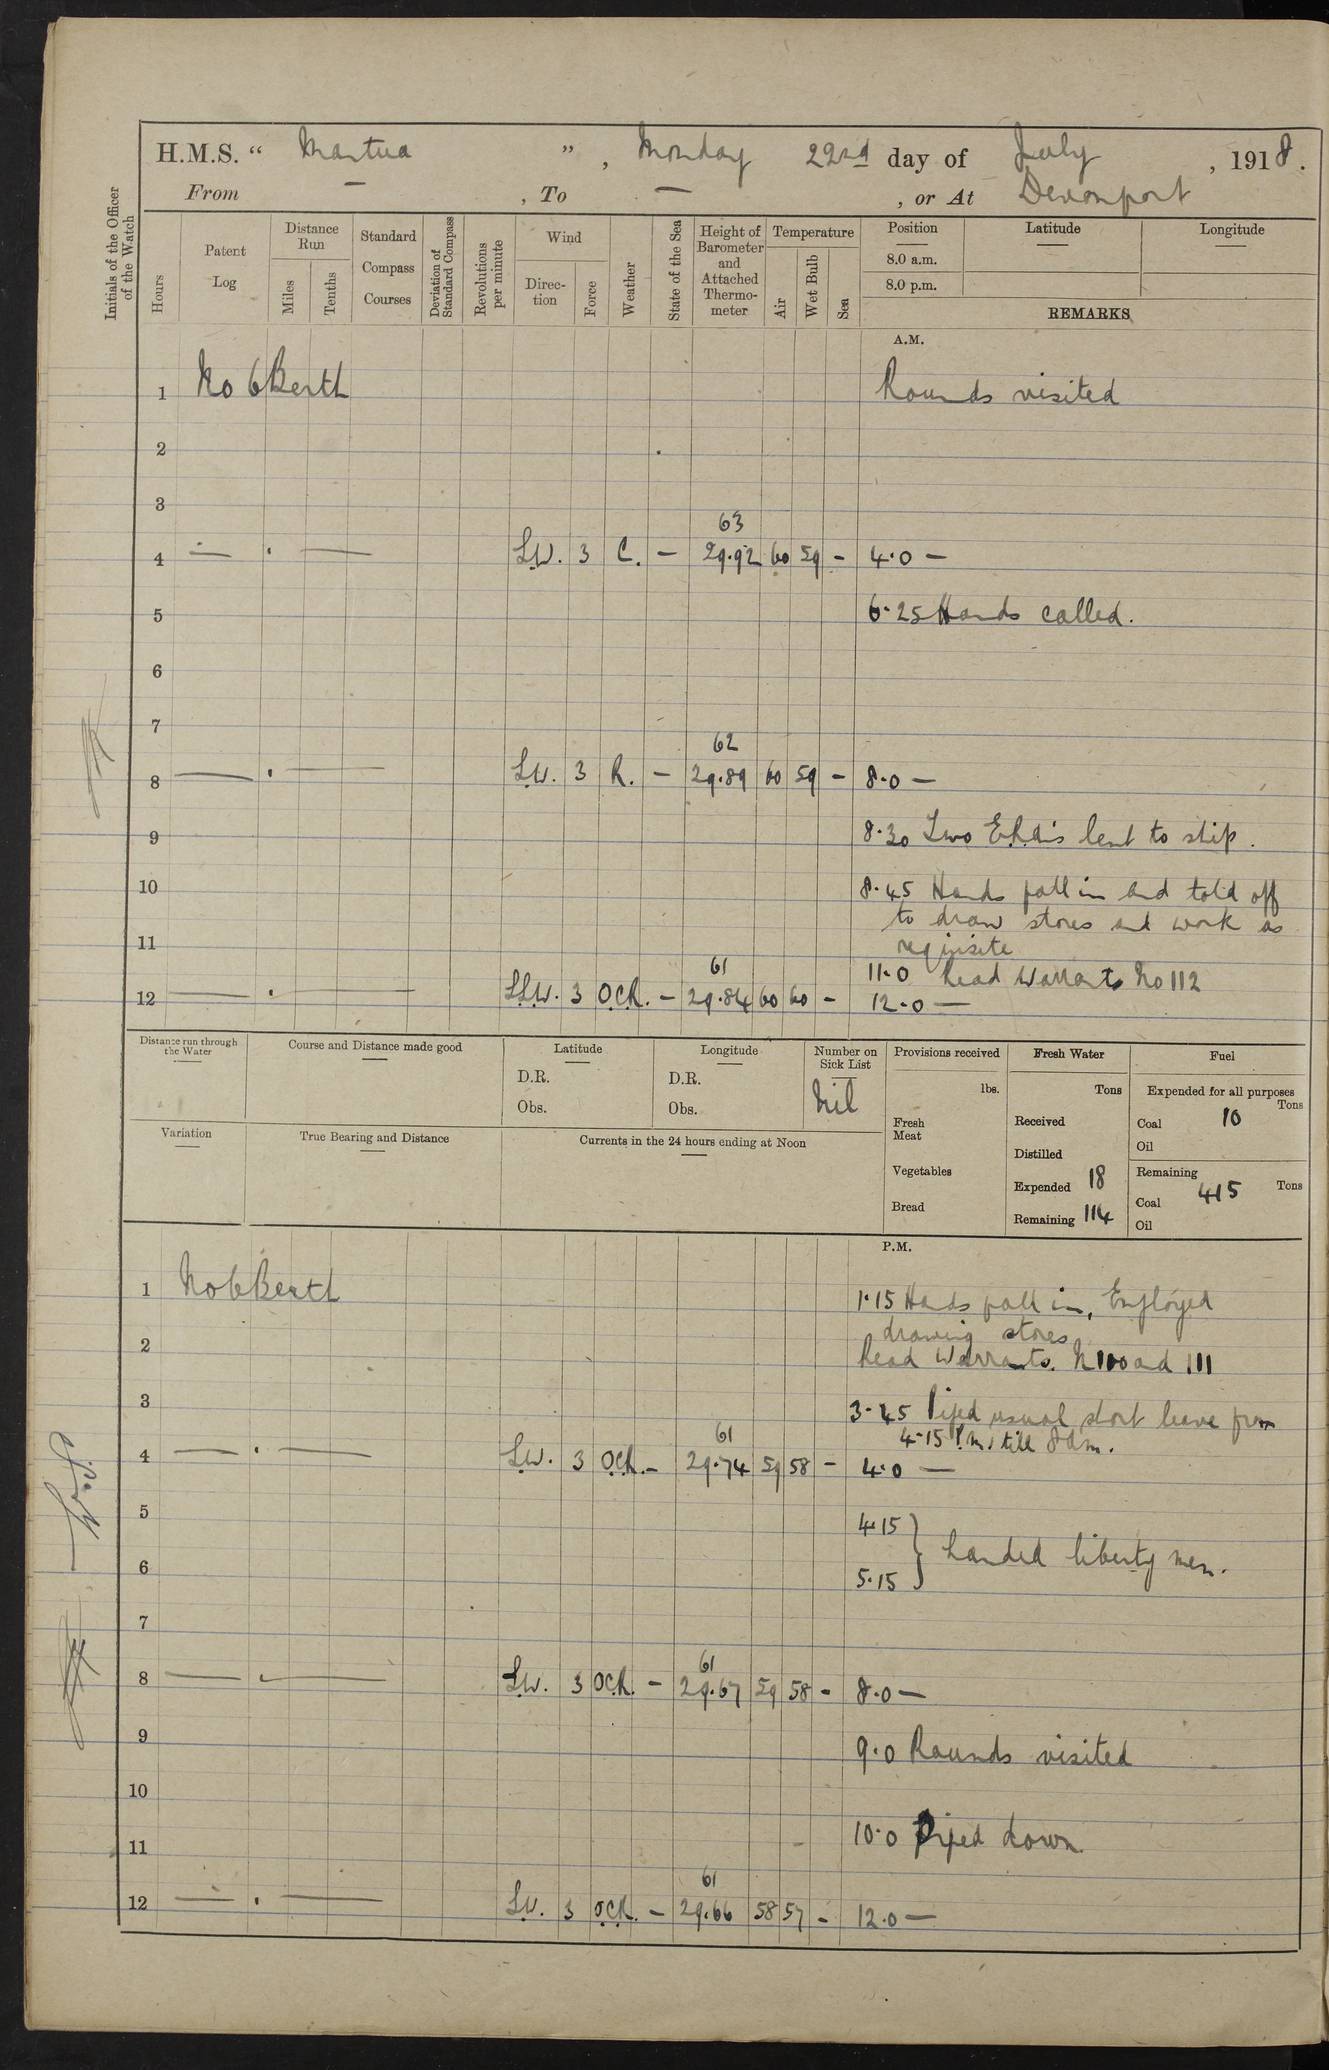 H.M.S. " Mantua ", Monday 22nd day of July, 1918.
From — , To — , or At Devonport
Initials of the Officer of the Watch
Hours
Patent Log
Distance Run
Miles
Tenths
Standard Compass Courses
Deviation of Standard Compass
Revolutions per minute
Wind
Direction
Force
Weather
State of the Sea
Height of Barometer and Attached Thermometer
Temperature
Air
Wet Bulb
Sea
Position
8.0 a.m.
8.0 p.m.
Latitude
Longitude
REMARKS
A.M.
1 No 6 Berth Rounds visited
2
3
63
4 — . — S.W. 3 C. — 29.92 60 59 – 4.0 —
5 6.25 Hands called.
6
7
62
8 — . — S.W. 3 R. — 29.89 60 59 – 8.0 —
9 8.30 Two E.R.A's lent to ship.
10 8.45 Hands fall in and told off
to draw stores and work as
11 requisite
61
11.0 Read Warrants No 112
12 — . — S.S.W. 3 O.C.R. – 29.84 60 60 – 12.0 —
Distance run through the Water
Course and Distance made good
Latitude
D.R.
Obs.
Longitude
D.R.
Obs.
Number on Sick List
Nil
Provisions received
lbs.
Fresh Meat
Vegetables
Bread
Fresh Water
Tons
Received
Distilled
Expended 18
Remaining 114
Fuel
Expended for all purposes
Tons
Coal 10
Oil
Remaining
Tons
Coal 415
Oil
Variation
True Bearing and Distance
Currents in the 24 hours ending at Noon
P.M.
1 No 6 Berth 1.15 Hands fall in, Employed
drawing stores
2 Read Warrants. N 110 and 111
3 3.45 Piped usual short leave from
61 4.15 P.m. till 8 Am.
4 — . — S.W. 3 O.C.R. – 29.74 59 58 – 4.0 —
5 4.15
} Landed liberty men.
6 5.15
7
61
8 — . — S.W. 3 O.C.R. – 29.67 59 58 – 8.0 —
9 9.0 Rounds visited
10
11 10.0 Piped down
61
12 — . — S.W. 3 O.C.R. – 29.66 58 57 – 12.0 —